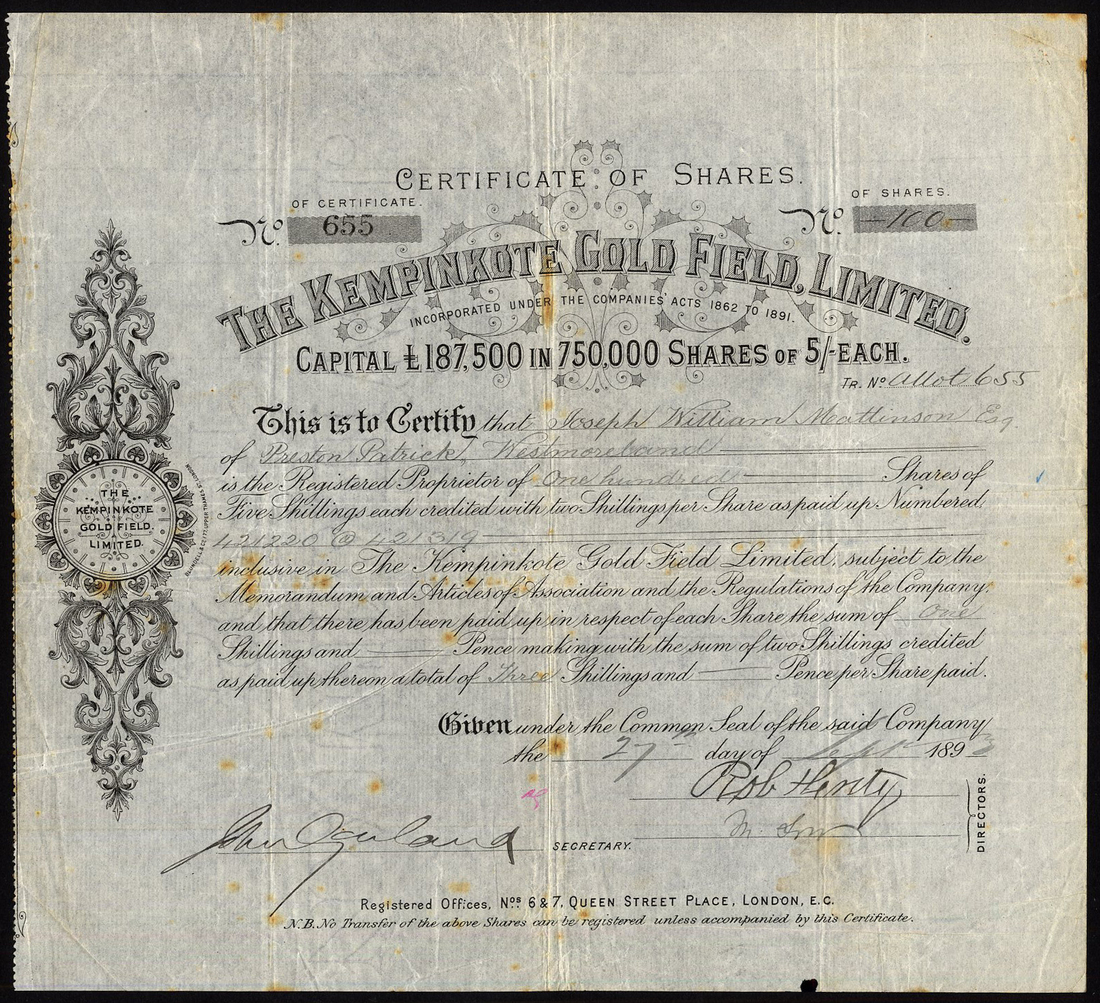 CERTIFICATE OF SHARES.
OF CERTIFICATE.
No. 655
OF SHARES.
No. -100-
THE KEMPINKOTE GOLD FIELD, LIMITED.
INCORPORATED UNDER THE COMPANIES' ACTS 1862 TO 1891.
CAPITAL £187,500 IN 750,000 SHARES OF 5/- EACH.
TR. No Allot 655
This is to Certify that Joseph William Mattinson Esq
of Preston Patrick, Westmoreland
is the Registered Proprietor of One hundred Shares of
Five Shillings each credited with two Shillings per Share as paid up Numbered
421220 @ 421319
inclusive in The Kempinkote Gold Field Limited, subject to the
Memorandum and Articles of Association and the Regulations of the Company,
and that there has been paid up in respect of each Share the sum of One
Shillings and Pence making with the sum of two Shillings credited
as paid up thereon a total of Three Shillings and Pence per Share paid.
Given under the Common Seal of the said Company
the 27th day of Sept 1893
Rob Henty
DIRECTORS.
John
SECRETARY.
Registered Offices, Nos. 6 & 7, QUEEN STREET PLACE, LONDON, E.C.
N.B. No Transfer of the above Shares can be registered unless accompanied by this Certificate.
THE
KEMPINKOTE
GOLD FIELD,
LIMITED.